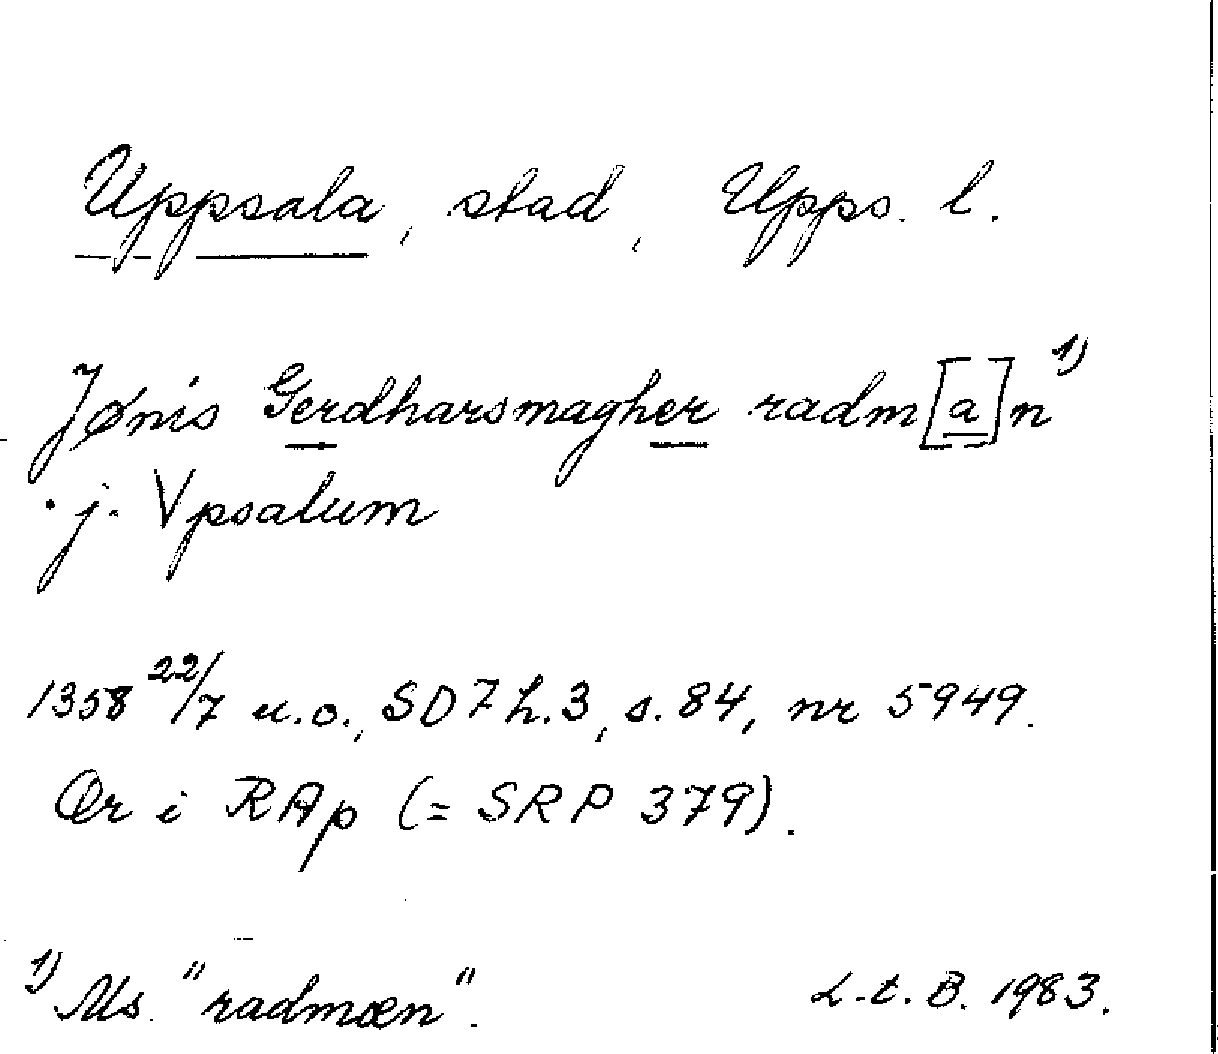 Uppsala, stad, Upps. l.
Jønis Gerdharsmagher radm[a]n 1)
j. Vpsalum
1358 22/7 u.o., SD 7 h.3, s. 84, nr 5949.
Or i RAp (= SRP 379).
1) Ms. "radmæn".
L.t.B. 1983.